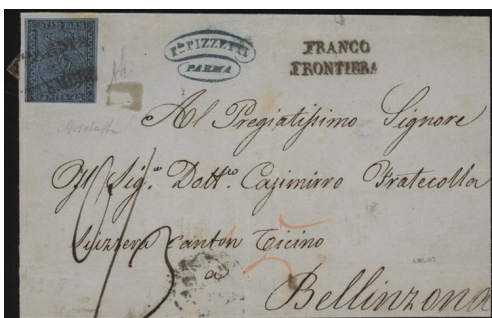 STATI PARM.
F.lli PIZZETTI
PARMA
FRANCO
FRONTIERA
Al Pregiatissimo Signore
Il Sig.e Dott.re Casimirro Fratecolla
Suizzera Canton Ticino
Bellinzona
15